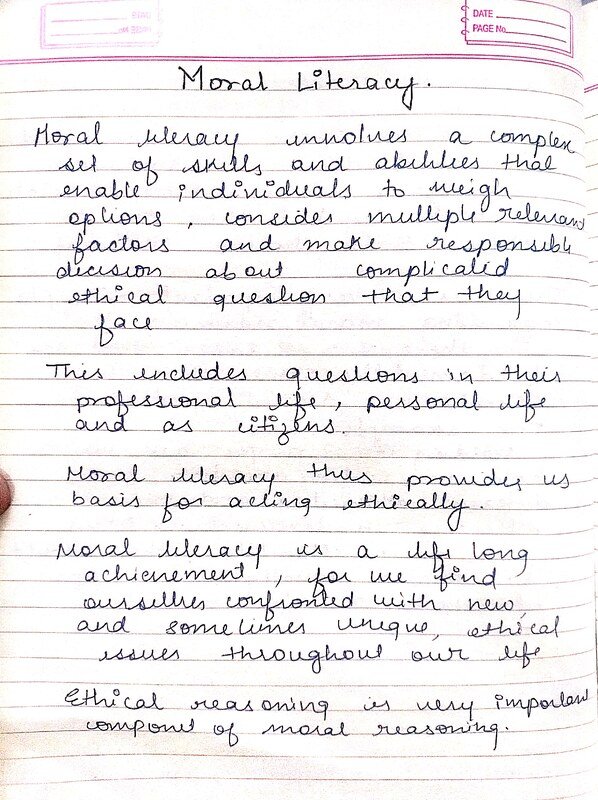 DATE
PAGE No.
Moral Literacy.
Moral literacy involves a complex
set of skills and abilities that
enable individuals to weigh
options, consider multiple relevant
factors and make responsible
decision about complicated
ethical question that they
face
This includes questions in their
professional life, personal life
and as citizens.
Moral literacy thus provides us
basis for acting ethically.
Moral literacy is a life long
achievement, for we find
ourselves confronted with new,
and sometimes unique, ethical
issues throughout our life
Ethical reasoning is very important
componet of moral reasoning.